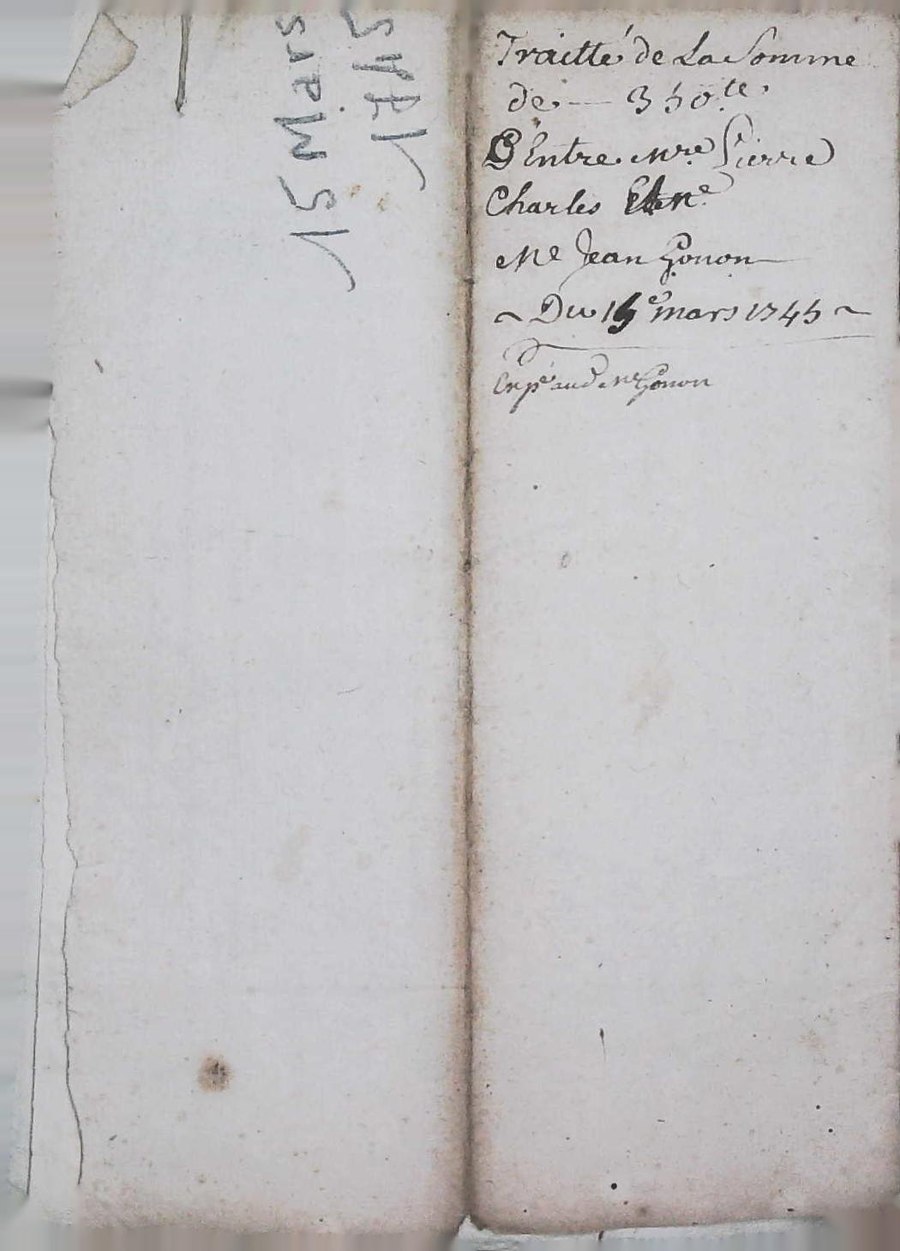 Traitté de La Somme
de — 350.te
D'Entre Mre Pierre
Charles
Me Jean Gonon
~ Du 15e mars 1745 ~
Me Gonon
15 Mars
1745